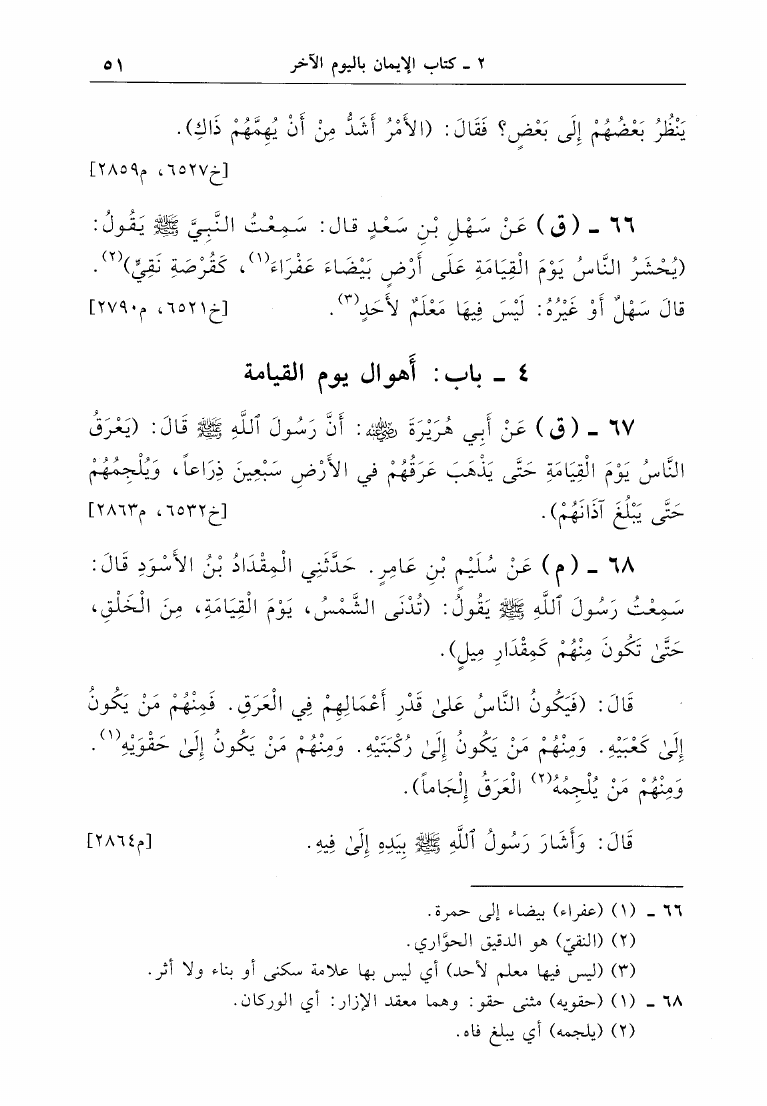 ٢ ـ كتاب الإيمان باليوم الآخر ٥١
يَنْظُرُ بَعْضُهُمْ إِلَى بَعْضٍ؟ فَقَالَ: (الأَمْرُ أَشَدُّ مِنْ أَنْ يُهِمَّهُمْ ذَاكِ).
[خ٦٥٢٧، م٢٨٥٩]
٦٦ ـ (ق) عَنْ سَهْلِ بْنِ سَعْدٍ قال: سَمِعْتُ النَّبِيَّ ﷺ يَقُولُ:
(يُحْشَرُ النَّاسُ يَوْمَ الْقِيَامَةِ عَلَى أَرْضٍ بَيْضَاءَ عَفْرَاءَ(١)، كَقُرْصَةِ نَقِيٍّ)(٢).
قالَ سَهْلٌ أَوْ غَيْرُهُ: لَيْسَ فِيهَا مَعْلَمٌ لأَحَدٍ(٣). [خ٦٥٢١، م٢٧٩٠]
٤ ـ باب: أهوال يوم القيامة
٦٧ ـ (ق) عَنْ أَبِي هُرَيْرَةَ رضي الله عنه: أَنَّ رَسُولَ ٱللَّهِ ﷺ قَالَ: (يَعْرَقُ
النَّاسُ يَوْمَ الْقِيَامَةِ حَتَّى يَذْهَبَ عَرَقُهُمْ في الأَرْضِ سَبْعِينَ ذِرَاعاً، وَيُلْجِمُهُمْ
حَتَّى يَبْلُغَ آذَانَهُمْ). [خ٦٥٣٢، م٢٨٦٣]
٦٨ ـ (م) عَنْ سُلَيْمِ بْنِ عَامِرٍ. حَدَّثَنِي الْمِقْدَادُ بْنُ الأَسْوَدِ قَالَ:
سَمِعْتُ رَسُولَ ٱللَّهِ ﷺ يَقُولُ: (تُدْنَى الشَّمْسُ، يَوْمَ الْقِيَامَةِ، مِنَ الْخَلْقِ،
حَتَّىٰ تَكُونَ مِنْهُمْ كَمِقْدَارِ مِيلٍ).
قَالَ: (فَيَكُونُ النَّاسُ عَلىٰ قَدْرِ أَعْمَالِهِمْ فِي الْعَرَقِ. فَمِنْهُمْ مَنْ يَكُونُ
إِلَىٰ كَعْبَيْهِ. وَمِنْهُمْ مَنْ يَكُونُ إِلَىٰ رُكْبَتَيْهِ. وَمِنْهُمْ مَنْ يَكُونُ إِلَىٰ حَقْوَيْهِ(١).
وَمِنْهُمْ مَنْ يُلْجِمُهُ(٢) الْعَرَقُ إِلْجَاماً).
قَالَ: وَأَشَارَ رَسُولُ ٱللَّهِ ﷺ بِيَدِهِ إِلَىٰ فِيهِ. [م٢٨٦٤]
٦٦ ـ (١) (عفراء) بيضاء إلى حمرة.
(٢) (النقيّ) هو الدقيق الحوَّاري.
(٣) (ليس فيها معلم لأحد) أي ليس بها علامة سكنى أو بناء ولا أثر.
٦٨ ـ (١) (حقويه) مثنى حقو: وهما معقد الإزار: أي الوركان.
(٢) (يلجمه) أي يبلغ فاه.